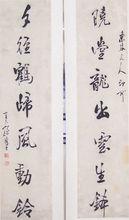 曉堂龍出雲生鉢
夕徑鶴歸風動鈴